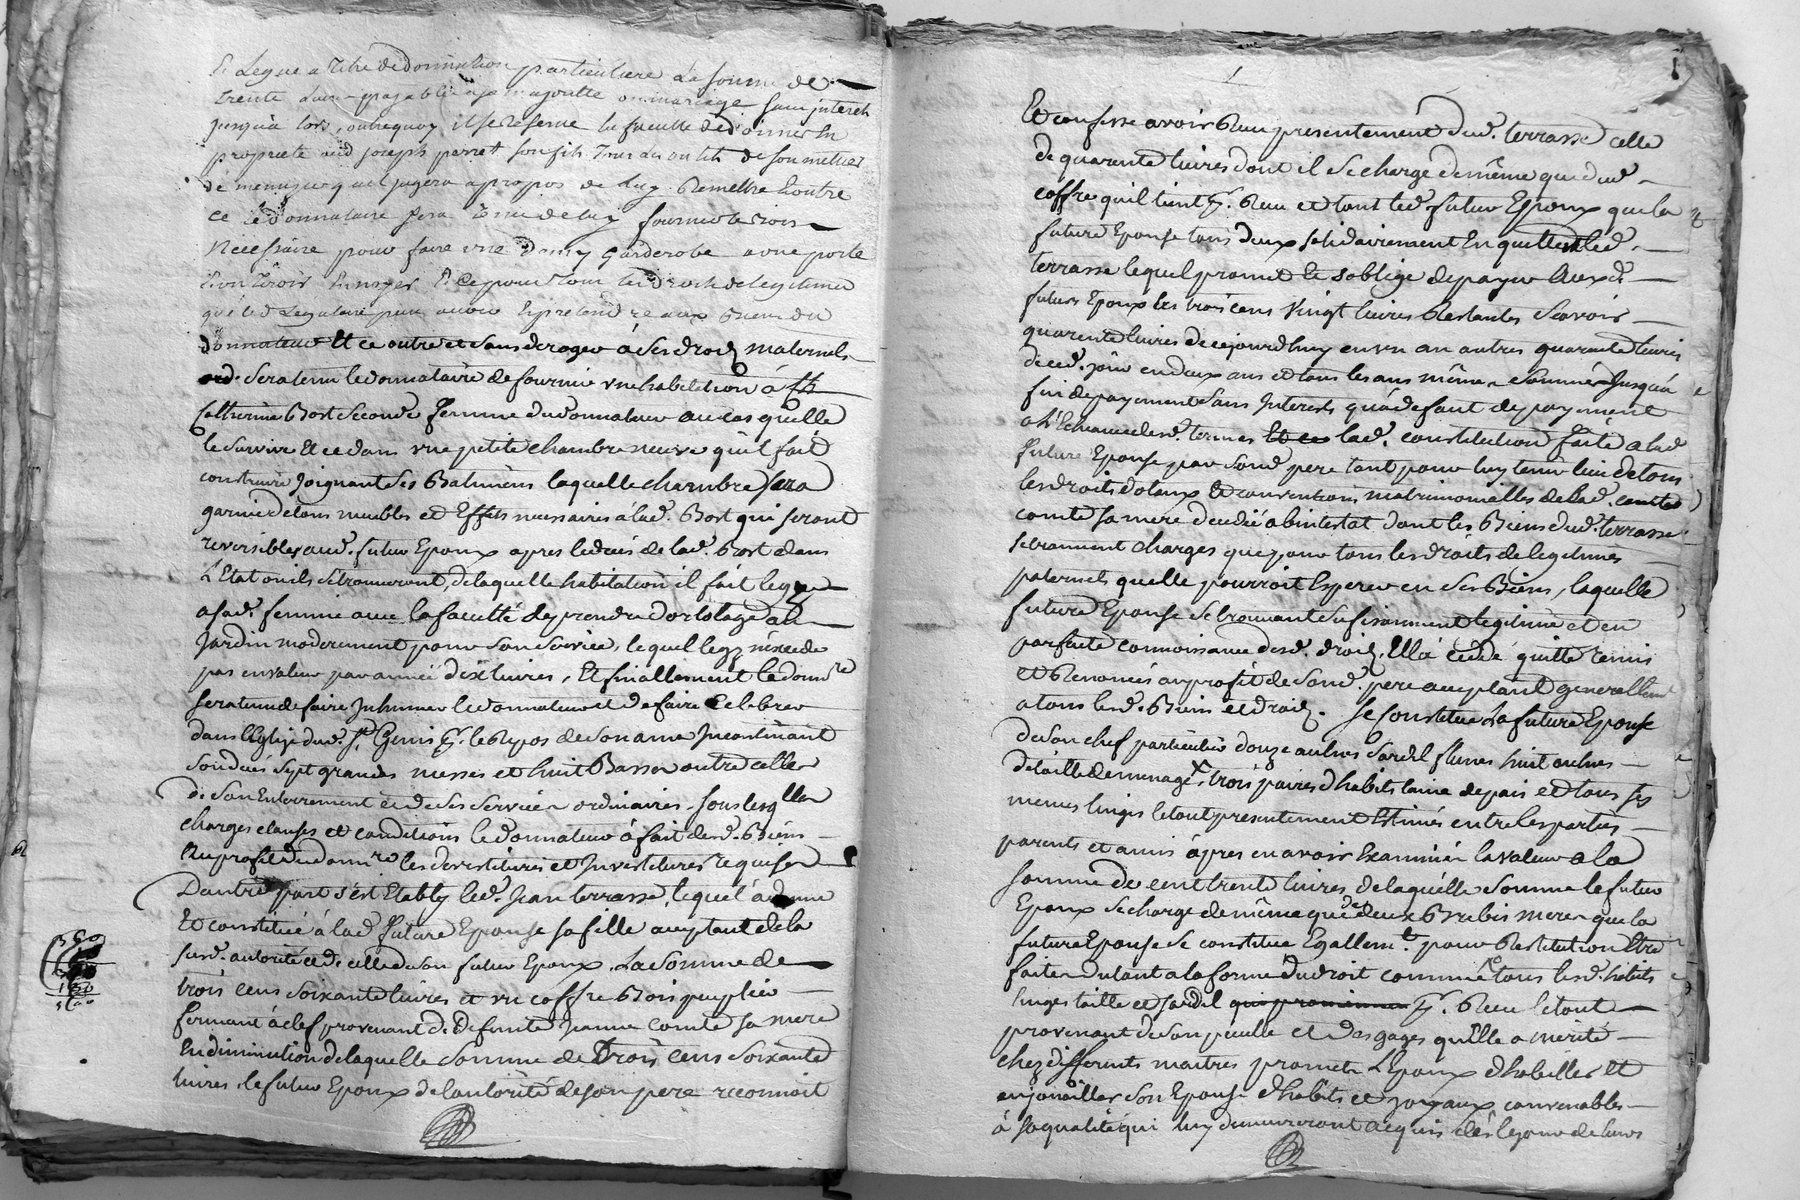 Et Legue a titre de donnation particuliere la somme de
trente livres payable a sa majorité ou mariage sans interets
jusqu'a lors, outrequoy il se reserve la faculté de donner en
proprieté aud joseph perret son fils tous les outils de son metier
de menusier quil jugera apropos de luy Remettre Et outre
ce le donnataire sera tenu de luy fournir le bois
Necessaire pour faire une demy garderobe a une porte
Et ce pour tous les droits de legitime
que led Legataire peut avoir Et pretendre aux biens du
donnateur Et ce outre et sans deroger à ses droits maternels
sera tenu le donnataire de fournir une habitation à
Catherine Bost seconde femme du donnateur au cas quelle
le survive Et ce dans une petite chambre neuve qu'il fait
construire joignant ses Batiments laquelle chambre sera
garnie de tous meubles et Effets necessaires à lad. Bost qui seront
reversibles aud. futur Epoux apres le deces de lad. Bost dans
L'Etat ou ils se trouveront, de laquelle habitation il fait legz
a sad. femme avec la faculté de prendre d'ortolage au
jardin moderement pour son service, lequel legz n'éxcede
pas en valeur par année dix livres, Et finallement le donnre
sera tenu de faire Inhumer le donnateur et de faire Celebrer
dans l'Eglise dud. St Genis pr. le Repos de son ame Incontinant
son deces sept grandes messes et huit Basses outre celles
de son Enterrement et de ses services ordinaires, sous lesqlles
charges clauses et conditions le donnateur à fait desd. Biens
Au profit du donnre les devestitures et Investitures requises
Dautre part s'est Etably led. Jean terrasse, lequel a donné
Et constitué à lad. future Epouse sa fille acceptant de la
susd. autorité et de celle de son futur Epoux La somme de
trois cens soixante livres et un coffre Bois peuplier
fermant à clef provenant de deffunte Jeanne Comte sa mere
En diminution de laquelle somme de trois cens soixante
livres, le futur Epoux de l'autorité de son pere reconnoit
1
Et confesse avoir Reçu presentement dud. terrasse celle
de quarente livres dont il se charge de même que dud.
coffre quil tient pr. Reçu et tant led. futur Epoux que la
future Epouse tous deux solidairement En quittent led.
terrasse lequel promet Et s'oblige de payer auxd.
futurs Epoux les trois cens vingt livres Restantes scavoir
quarente livres de cejourdhuy en un an autres quarente livres
de ced. jour en deux ans et tous les ans même somme jusqu'à
fin de payement sans Interets qu'à defaut de payement
a l'Echeance desd. termes Et ce lad. constitution faite a lad
future Epouse par sond. pere tant pour luy tenir lieu de tous
les droits dotaux Et conventions matrimonialles de lad. comte
comte sa mere decedée abintestat dont les Biens dud. terrasse
se trouvent charges que pour tous les droits de legitimes
paternels quelle pourroit Esperer en ses Biens, laquelle
future Epouse se trouvant sufisamment legitimée et en
parfaite connoissance desd. droits, Ella cedé quitté remis
et Renoncés au profit de sond. pere acceptant generallemt
a tous lesd. Biens et droits. Se Constitue la future Epouse
de son chef particulier douze aulnes sardil fleuret huit aulnes
detaille de menage trois paires d'habits laine de pais et tous ses
menus linges le tout presentement Estimés entre les parties
parents et amis apres en avoir Examiné la valeur a la
somme de cent trente livres, de laquelle somme le futur
Epoux se charge de même que de deux Brebis meres que la
future Epouse se constitue Egallemt. pour Restitution Etre
faite du tant a la forme du droit comme tous lesd. habits
linges taille et sardil pr. Reçu le tout
provenant de son pecule et des gages qu'Elle a merité
chez differents maitres promet L'Epoux d'habiller Et
enjoailler son Epouse d'habits et joyaux convenables
à sa qualité qui luy demeureront acquis dès le jour de leurs